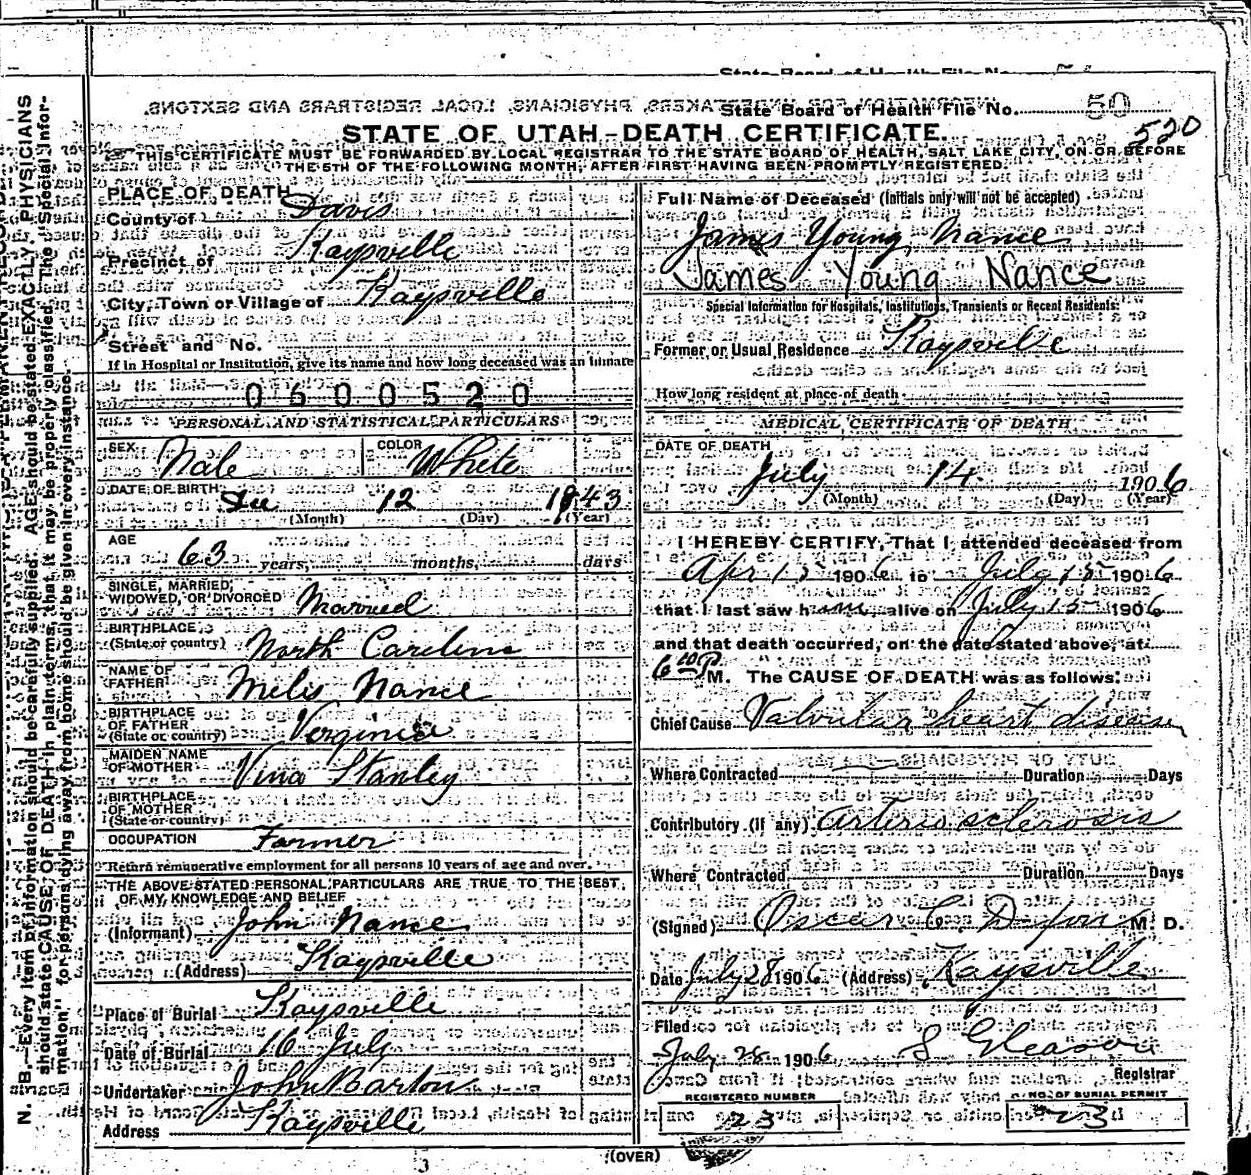 State Board of Health File No. 50
520
STATE OF UTAH-DEATH CERTIFICATE.
THIS CERTIFICATE MUST BE FORWARDED BY LOCAL REGISTRAR TO THE STATE BOARD OF HEALTH, SALT LAKE CITY, ON OR BEFORE
THE 5TH OF THE FOLLOWING MONTH, AFTER FIRST HAVING BEEN PROMPTLY REGISTERED.
PLACE OF DEATH
County of Davis
Precinct of Kaysville
City, Town or Village of Kaysville
Street and No.
If in Hospital or Institution, give its name and how long deceased was an inmate
0600520
PERSONAL AND STATISTICAL PARTICULARS
SEX Male COLOR White
DATE OF BIRTH 12 1843
(Month) (Day) (Year)
AGE 63 years, months, days
SINGLE, MARRIED,
WIDOWED, OR DIVORCED Married
BIRTHPLACE
(State or country) North Carolina
NAME OF
FATHER Melis Nance
BIRTHPLACE
OF FATHER
(State or country) Verginia
MAIDEN NAME
OF MOTHER Vina Stanley
BIRTHPLACE
OF MOTHER
(State or country)
OCCUPATION Farmer
Return remunerative employment for all persons 10 years of age and over.
THE ABOVE STATED PERSONAL PARTICULARS ARE TRUE TO THE BEST
OF MY KNOWLEDGE AND BELIEF
(Informant) John Nance
(Address) Kaysville
Place of Burial Kaysville
Date of Burial 16 July
Undertaker John Barton
Address Kaysville
Full Name of Deceased (Initials only will not be accepted)
James Young Nance
James Young Nance
Special Information for Hospitals, Institutions, Transients or Recent Residents:
Former or Usual Residence Kaysville
How long resident at place of death
MEDICAL CERTIFICATE OF DEATH
DATE OF DEATH
July 14 1906
(Month) (Day) (Year)
I HEREBY CERTIFY, That I attended deceased from
Apr 15 1906 to July 15 1906
that I last saw him alive on July 15 1906
and that death occurred, on the date stated above, at
6 00 P M. The CAUSE OF DEATH was as follows:
Chief Cause Valvular heart disease
Where Contracted Duration Days
Contributory (if any) Arterio sclerosis
Where Contracted Duration Days
(Signed) Oscar C. M. D.
Date July 28 1906 (Address) Kaysville
Filed
July 28 1906 S Gleason
Registrar
REGISTERED NUMBER
23
NO. OF BURIAL PERMIT
23
(OVER)
3
N. B.—Every item of information should be carefully supplied. AGE should be stated EXACTLY. PHYSICIANS
should state CAUSE OF DEATH in plain terms, that it may be properly classified. The "Special Infor-
mation" for persons dying away from home should be given in every instance.